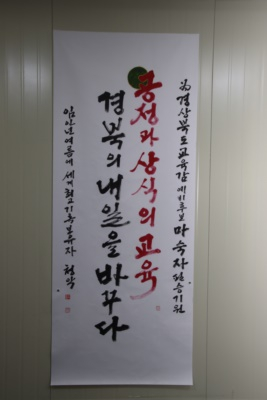 為 경상북도교육감 예비후보 마숙자 필승기원
공정과 상식의 교육
경북의 내일을 바꾸다
임인년 여름에 세계최고기록보유자